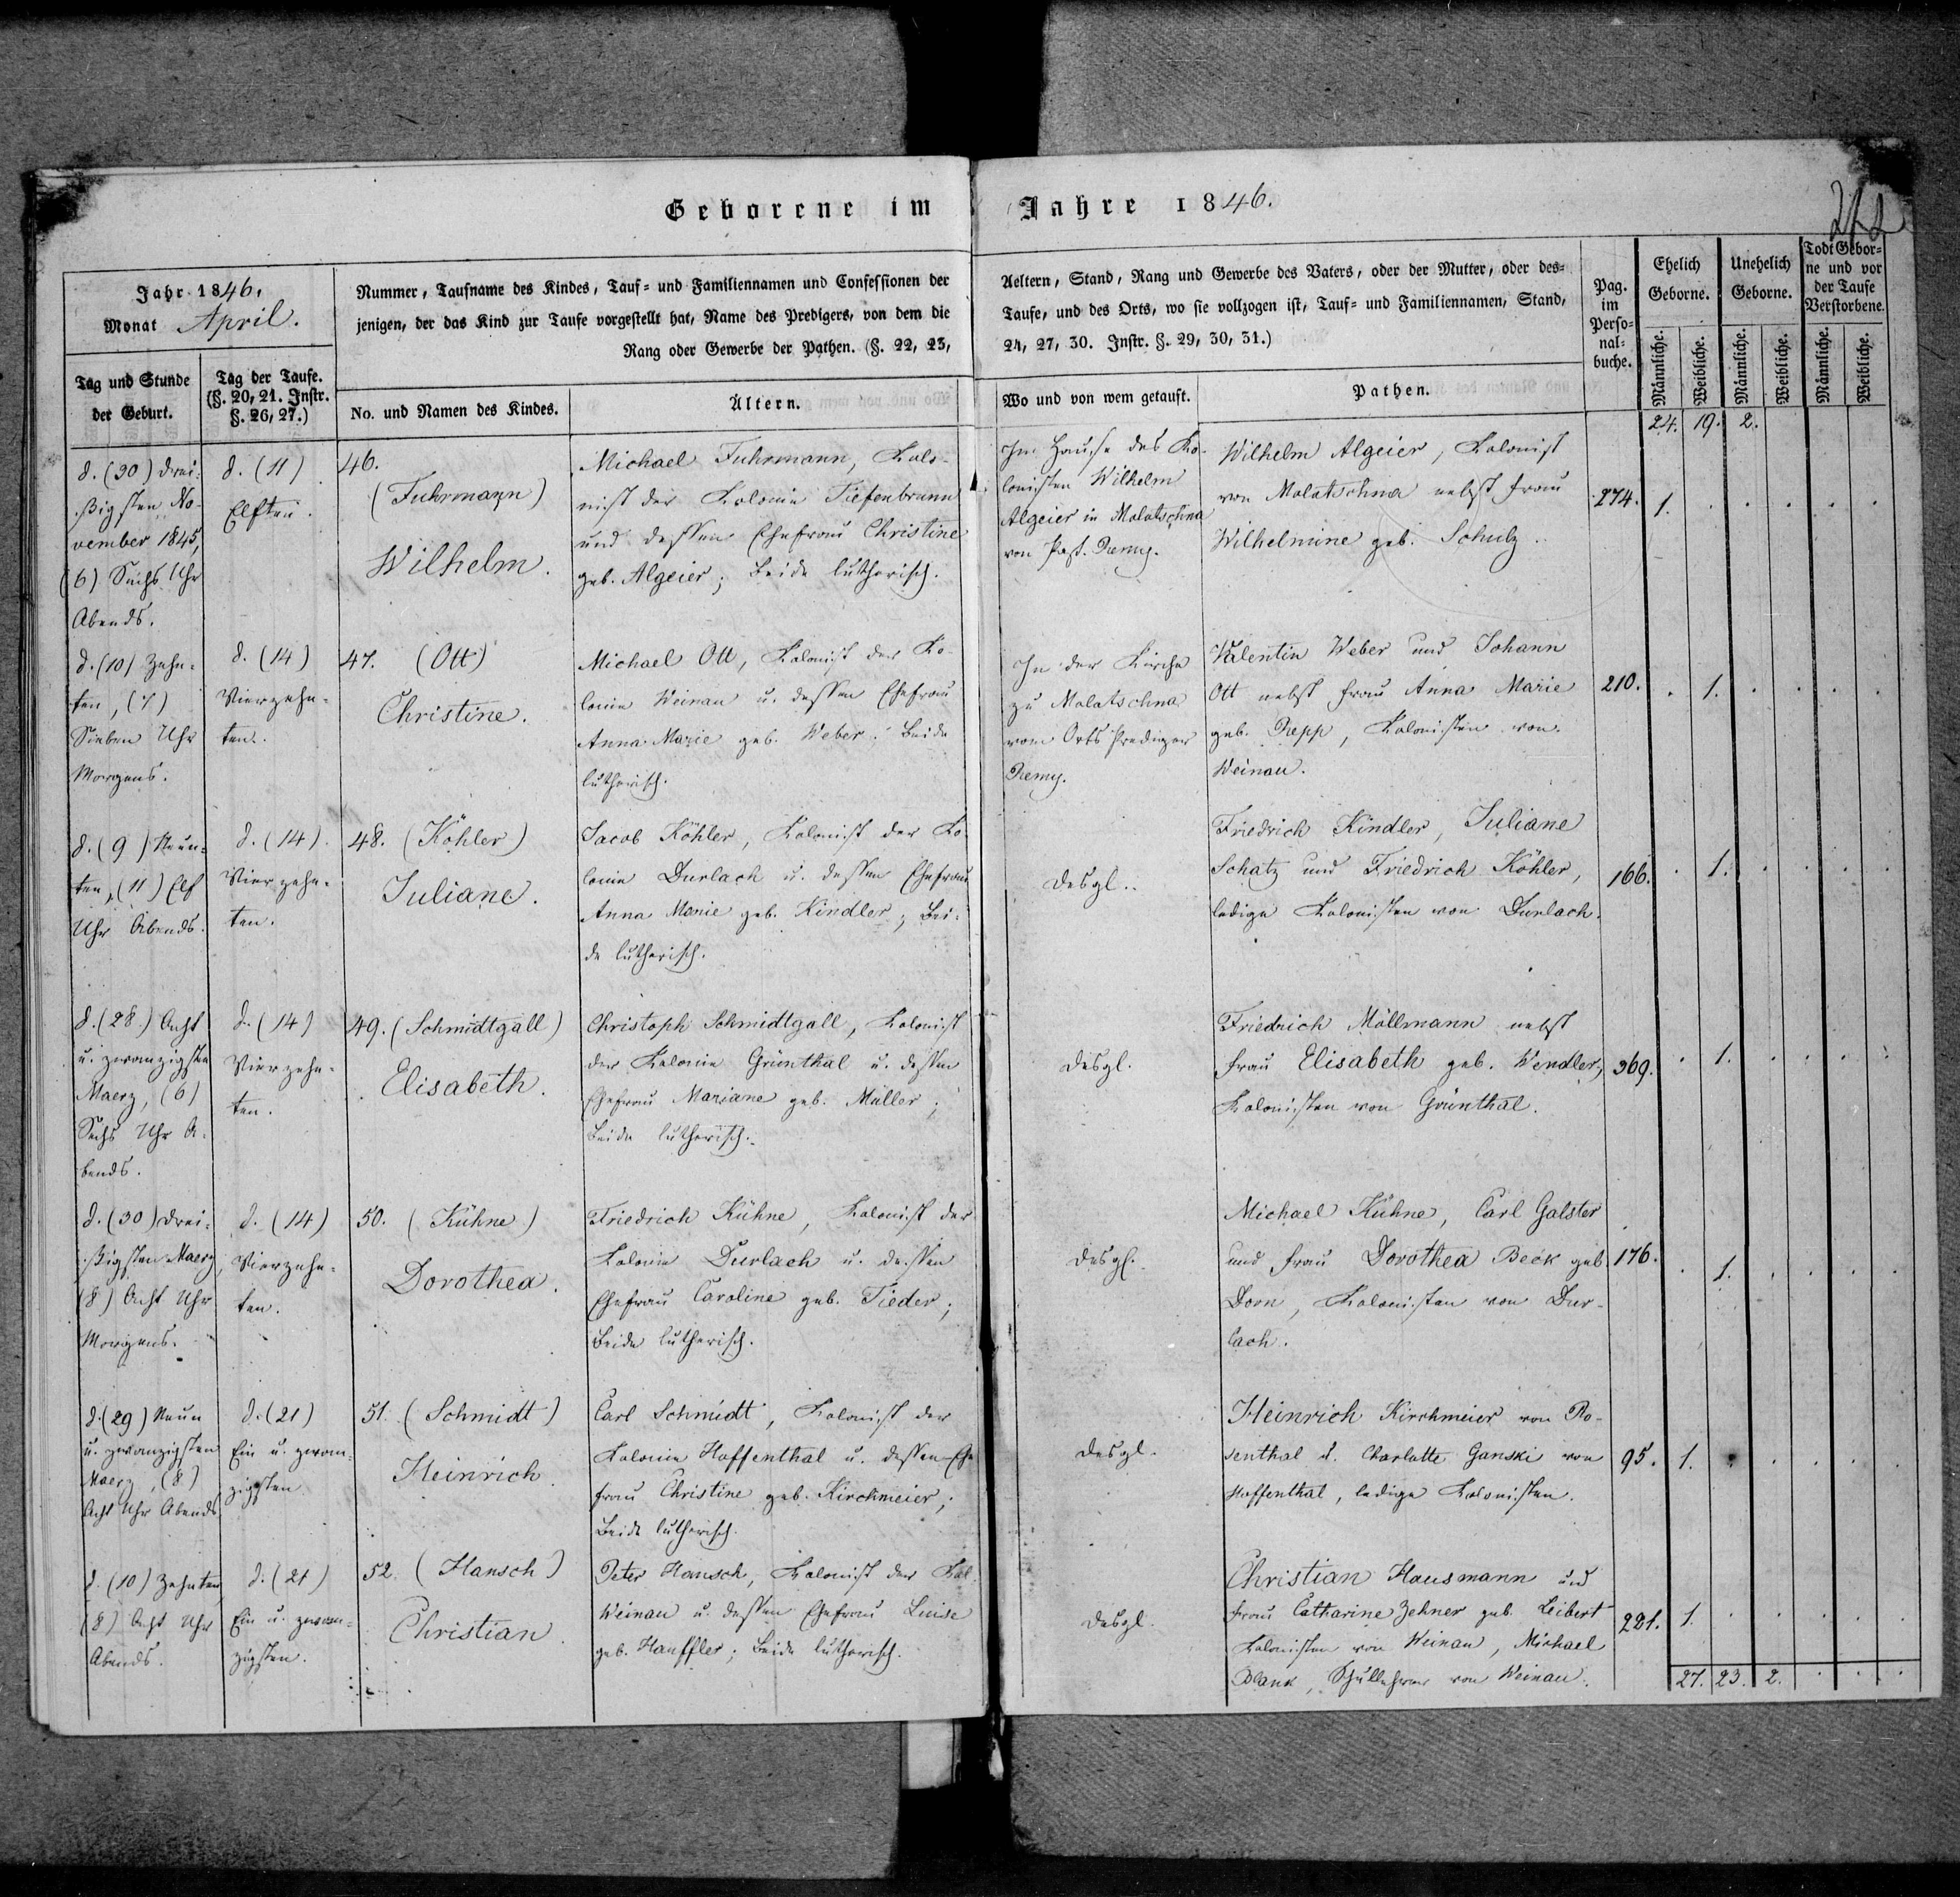 Geborene im Jahre 1846.
Jahr 1846.
Monat April.
Nummer, Taufname des Kindes, Tauf- und Familiennamen und Confessionen der
jenigen, der das Kind zur Taufe vorgestellt hat, Name des Predigers, von dem die
Rang oder Gewerbe der Pathen. (§. 22, 23,
Aeltern, Stand, Rang und Gewerbe des Vaters, oder der Mutter, oder des-
Taufe, und des Orts, wo sie vollzogen ist, Tauf- und Familiennamen, Stand,
24, 27, 30. Instr. §. 29, 30, 31.)
Pag.
im
Perso-
nal-
buche.
Ehelich
Geborne.
Unehelich
Geborne.
Todt Gebor-
ne und vor
der Taufe
Verstorbene.
Tag und Stunde
der Geburt.
Tag der Taufe.
(§. 20, 21. Instr.
§. 26, 27.)
No. und Namen des Kindes.
Ältern.
Wo und von wem getauft.
Pathen.
Männliche.
Weibliche.
Männliche.
Weibliche.
Männliche.
Weibliche.
24. 19. 2.
d. (30) drei-
ßigsten No-
vember 1845,
(6) Sechs Uhr
Abends.
d. (11)
Elften.
46.
(Fuhrmann)
Wilhelm.
Michael Fuhrmann, Kolo-
nist der Kolonie Tiefenbrunn
und dessen Ehefrau Christine
geb. Algeier; beide lutherisch.
Im Hause des Ko-
lonisten Wilhelm
Algeier in Molotschna
von Past. Remy.
Wilhelm Algeier, Kolonist
von Molotschna nebst Frau
Wilhelmine geb. Schulz.
274. 1.
d. (10) Zehn-
ten, (7)
Sieben Uhr
Morgens.
d. (14)
Vierzehn-
ten.
47. (Ott)
Christine.
Michael Ott, Kolonist der Ko-
lonie Weinau u. dessen Ehefrau
Anna Marie geb. Weber. Beide
lutherisch.
In der Kirche
zu Molotschna
vom Orts Prediger
Remy.
Valentin Weber und Johann
Ott nebst Frau Anna Marie
geb. Repp, Kolonisten von
Weinau.
210. 1.
d. (9) Neun-
ten, (11) Elf
Uhr Abends.
d. (14).
Vierzehn-
ten.
48. (Köhler)
Juliane.
Jacob Köhler, Kolonist der Ko-
lonie Durlach u. dessen Ehefrau
Anna Marie geb. Kindler; Bei-
de lutherisch.
desgl.
Friedrich Kindler, Juliane
Schatz und Friedrich Köhler,
ledige Kolonisten von Durlach.
166. 1.
d. (28) Acht
u. zwanzigsten
Maerz, (6)
Sechs Uhr A-
bends.
d. (14)
Vierzehn-
ten.
49. (Schmidtgall)
Elisabeth.
Christoph Schmidtgall, Kolonist
der Kolonie Grünthal u. dessen
Ehefrau Mariane geb. Müller;
Beide lutherisch.
desgl.
Friedrich Möllmann nebst
Frau Elisabeth geb. Wendler,
Kolonisten von Grünthal.
369. 1.
d. (30) drei-
ßigsten Maerz,
(8) Acht Uhr
Morgens.
d. (14)
Vierzehn-
ten.
50. (Kühne)
Dorothea.
Friedrich Kühne, Kolonist der
Kolonie Durlach u. dessen
Ehefrau Caroline geb. Tieder;
Beide lutherisch.
desgl.
Michael Kühne, Carl Galster
und Frau Dorothea Beck geb
Dorn, Kolonisten von Dur-
lach.
176. 1.
d. (29) Neun
u. zwanzigsten
Maerz, (8)
Acht Uhr Abends
d. (21)
Ein u. zwan-
zigsten
51. (Schmidt)
Heinrich.
Carl Schmidt, Kolonist der
Kolonie Hoffenthal u. dessen Ehe
frau Christine geb. Kirchmeier;
Beide lutherisch.
desgl.
Heinrich Kirchmeier von Ro-
senthal u. Charlotte Ganski von
Hoffenthal, ledige Kolonisten.
95. 1.
d. (10) Zehnten
(8) Acht Uhr
Abends.
d. (21)
Ein u. zwan-
zigsten.
52. (Hansch)
Christian.
Peter Hansch, Kolonist der Kol.
Weinau u. dessen Ehefrau Luise
geb. Hauffler; Beide lutherisch.
desgl.
Christian Hausmann und
Frau Catharine Zehner geb. Leibert
Kolonisten von Weinau, Michael
Blank, Schullehrer von Weinau.
221. 1.
27. 23. 2.